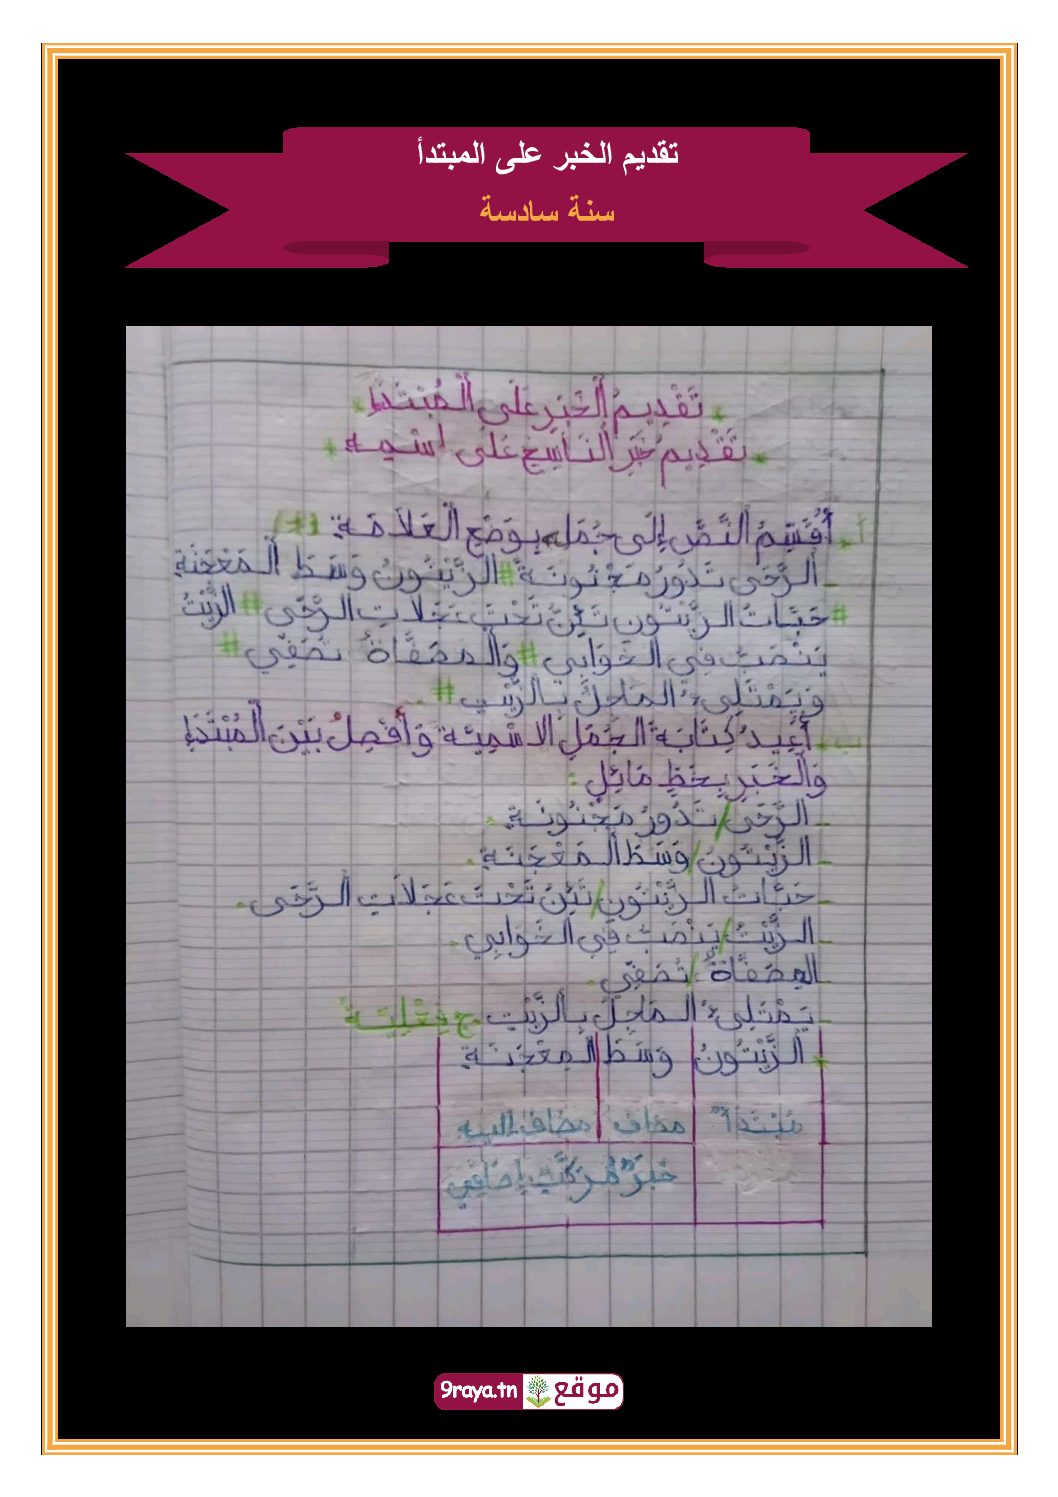 تقديم الخبر على المبتدأ
سنة سادسة
* تَقْدِيمُ الْخَبَرِ عَلَى الْمُبْتَدَإِ *
* تَقْدِيم خَبَرِ النَّاسِخِ عَلَى اسْمِهِ *
أ. أُقَسِّمُ النَّصَّ إِلَى جُمَلِهِ بِوَضْعِ الْعَلاَمَةِ (#)
_ الرَّحَى تَدُورُ مَجْنُونَةً # الزَّيْتُونُ وَسَطَ الْمَعْجَنَةِ
# حَبَّاتُ الزَّيْتُونِ تَئِنُّ تَحْتَ عَجَلاَتِ الرَّحَى # الزَّيْتُ
يَنْصَبُّ فِي الخَوَابِي # وَالْمِصْفَاةُ تُصَفِّي #
وَيَمْتَلِىءُ المَاجِلُ بِالزَّيْتِ #
ب. أُعِيدُ كِتَابَةَ الجُمَلِ الاسْمِيَّةِ وَأَفْصِلُ بَيْنَ الْمُبْتَدَإِ
وَالْخَبَرِ بِخَطٍّ مَائِلٍ :
_ الرَّحَى / تَدُورُ مَجْنُونَةً.
_ الزَّيْتُونُ / وَسَطَ الْمَعْجَنَةِ.
_ حَبَّاتُ الزَّيْتُونِ / تَئِنُّ تَحْتَ عَجَلاَتِ الرَّحَى.
_ الزَّيْتُ / يَنْصَبُّ فِي الخَوَابِي.
المِصْفَاةُ / تُصَفِّي.
_ يَمْتَلِىءُ المَاجِلُ بِالزَّيْتِ. ج فِعْلِيَّة
* الزَّيْتُونُ وَسَطَ الْمِعْجَنَةِ
مُبْتَدَأٌ مضاف مضاف إليه
خَبَرٌ مُرَكَّبٌ إِضَافِي
موقع 9raya.tn